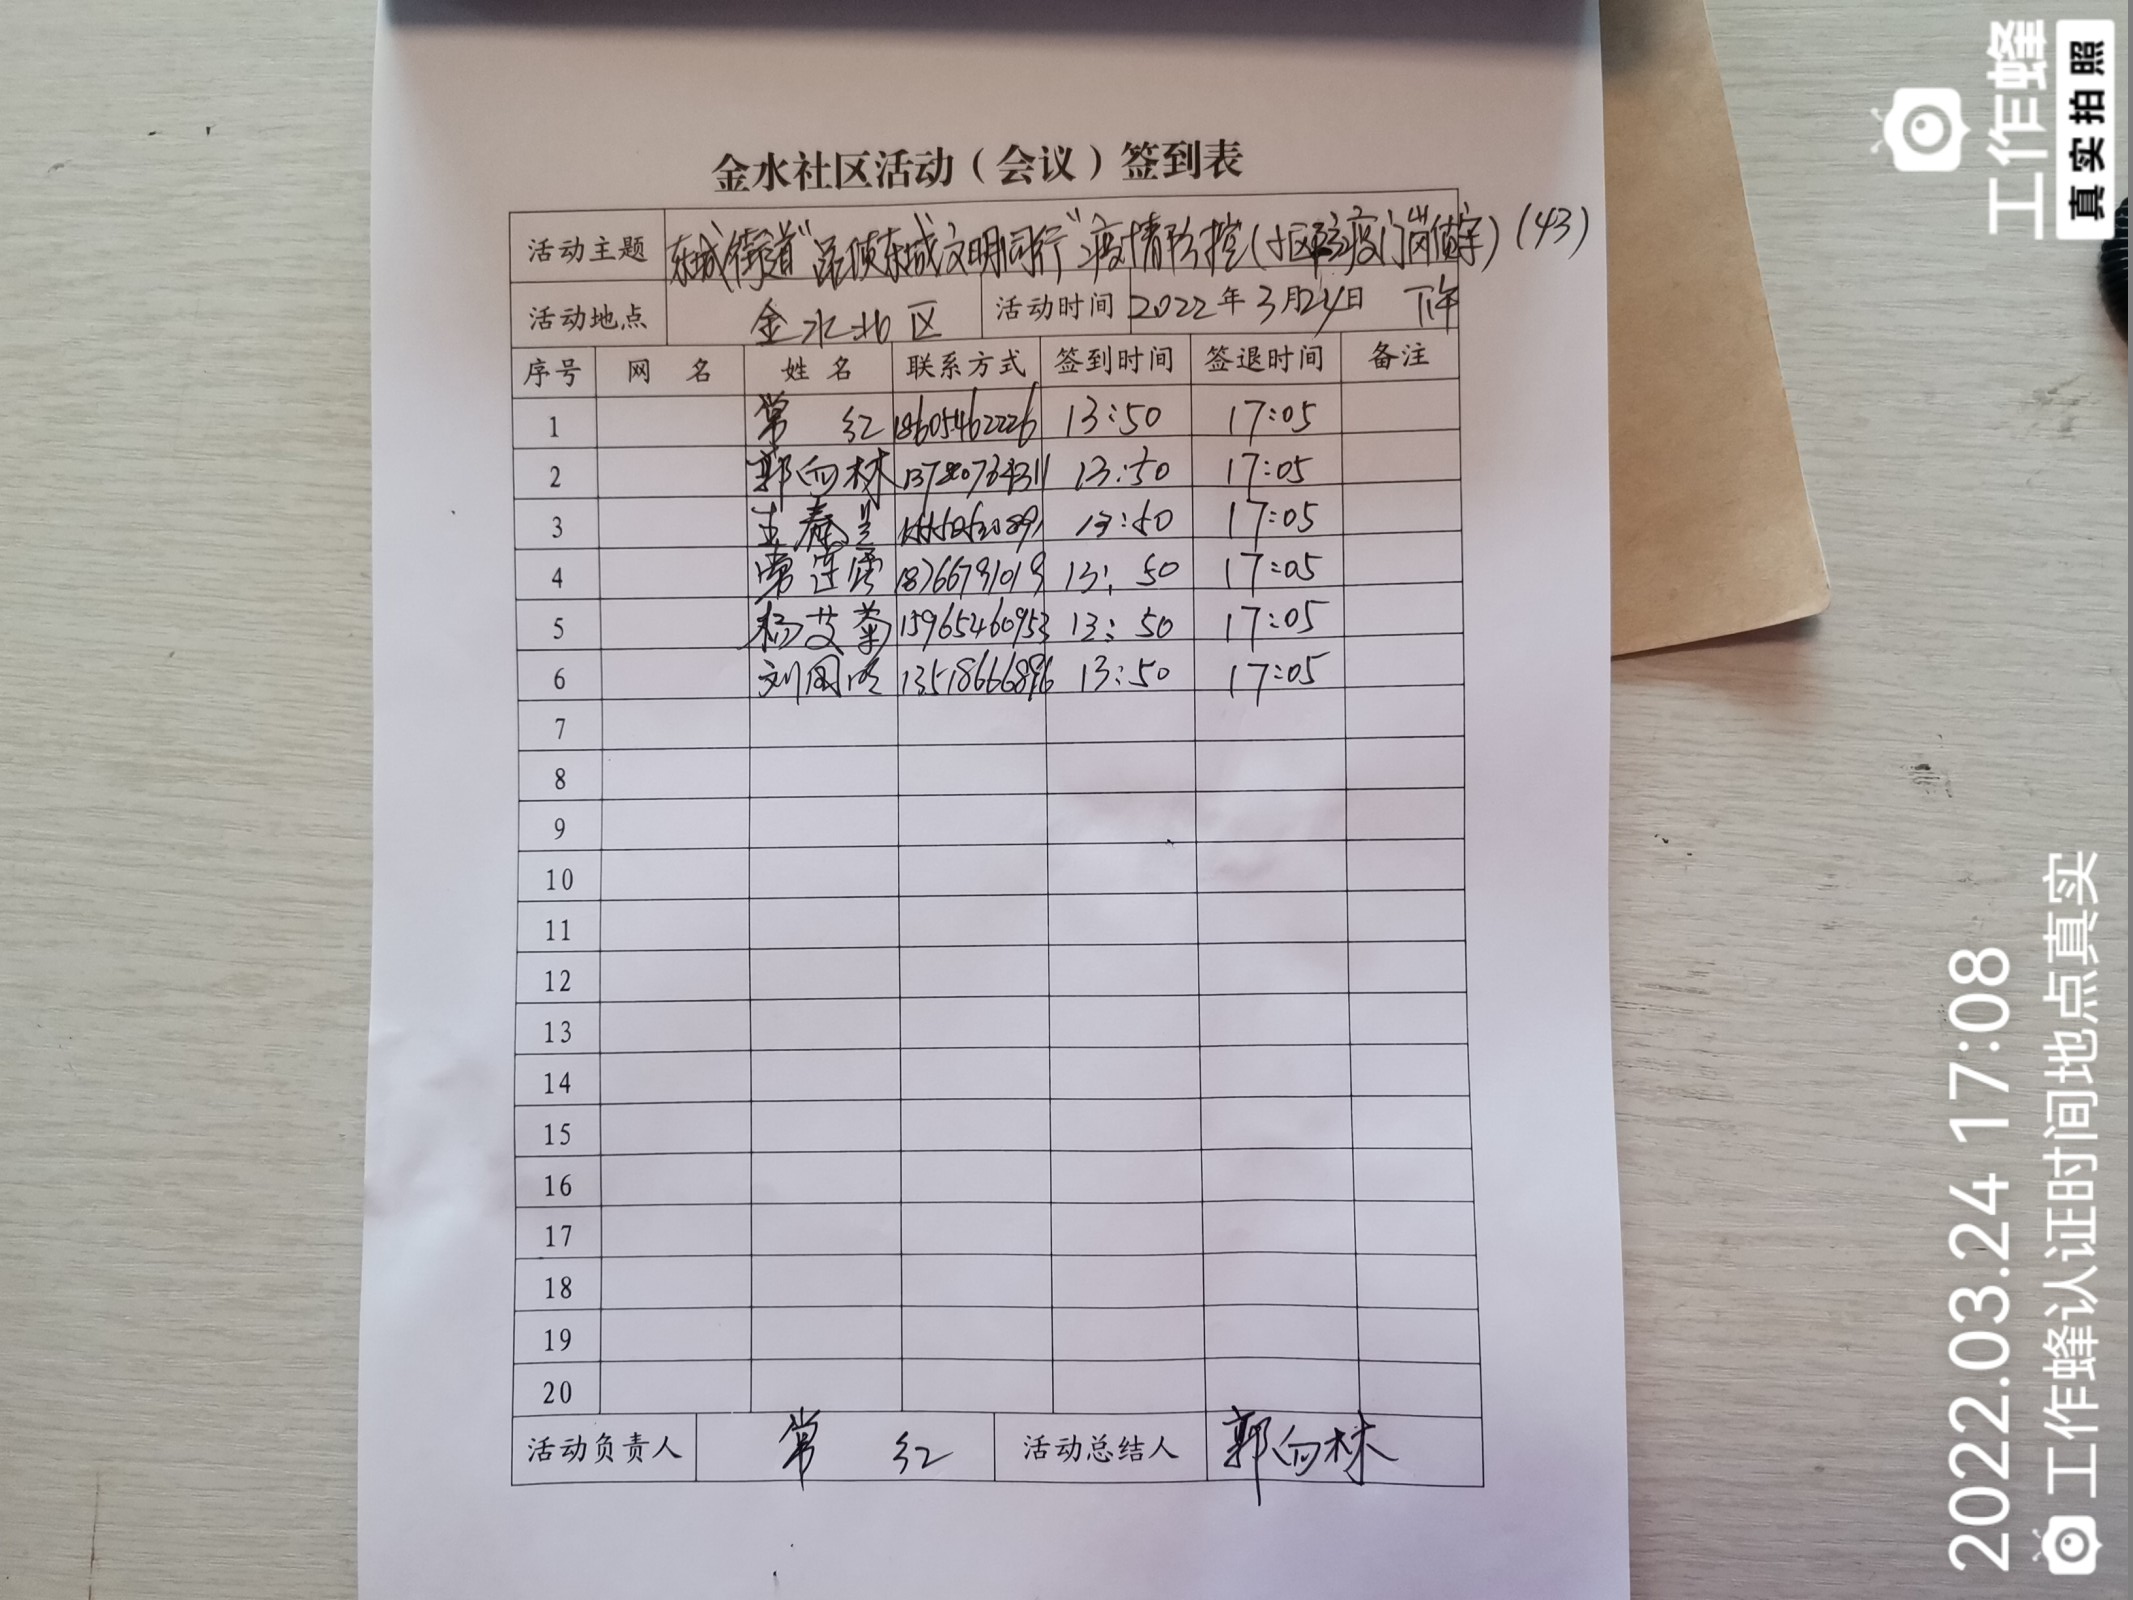 金水社区活动（会议）签到表
活动主题 东城街道“品质东城文明同行”疫情防控（小区防疫门岗值守）（43）
活动地点 金水北区 活动时间 2022年3月24日 下午
序号 网 名 姓 名 联系方式 签到时间 签退时间 备注
1 常 红 18605462226 13:50 17:05
2 郭向林 13780764311 13:50 17:05
3 王春兰 13:50 17:05
4 常连 18766791019 13:50 17:05
5 杨艾菊 15965460953 13:50 17:05
6 刘国 13518666896 13:50 17:05
7
8
9
10
11
12
13
14
15
16
17
18
19
20
活动负责人 常 红 活动总结人 郭向林
工作蜂
真实拍照
2022.03.24 17:08
工作蜂认证时间地点真实